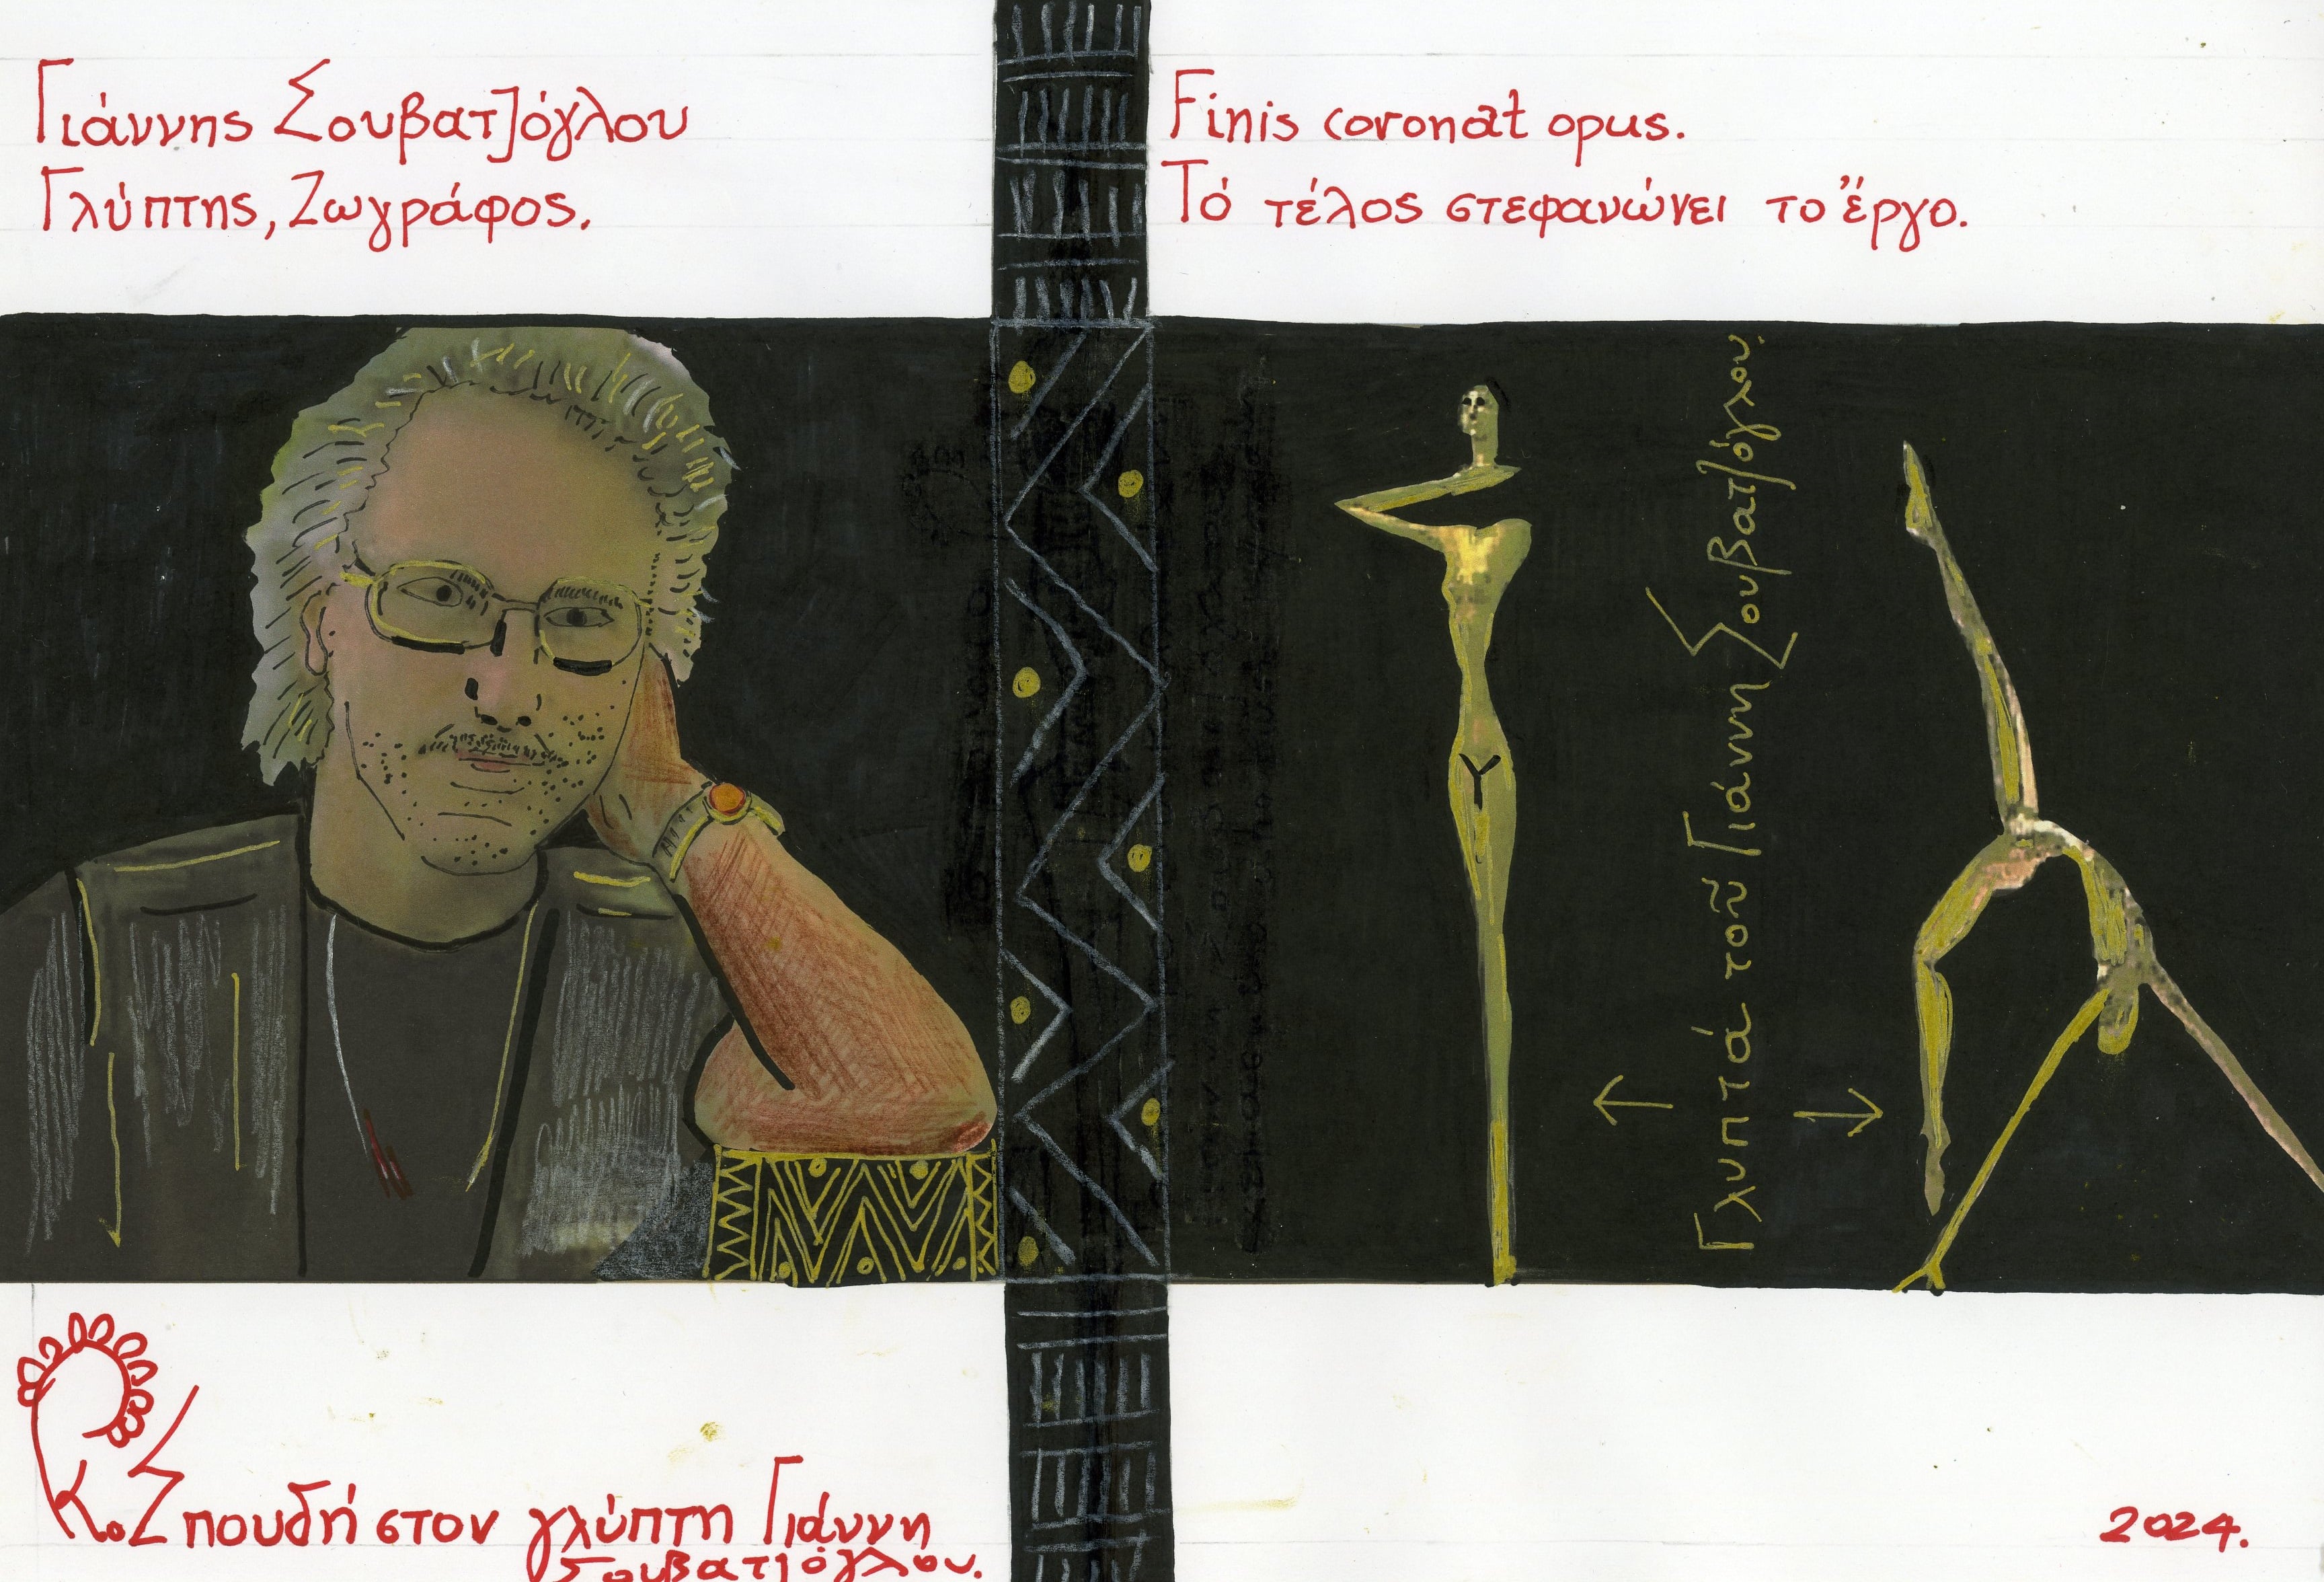 Γιάννης Σουβατζόγλου
Γλύπτης, Ζωγράφος.
Finis coronat opus.
Τό τέλος στεφανώνει το ἔργο.
Γλυπτά τοῦ Γιάννη Σουβατζόγλου.
Κ.Σπουδή στον γλύπτη Γιάννη
Σουβατζόγλου.
2024.